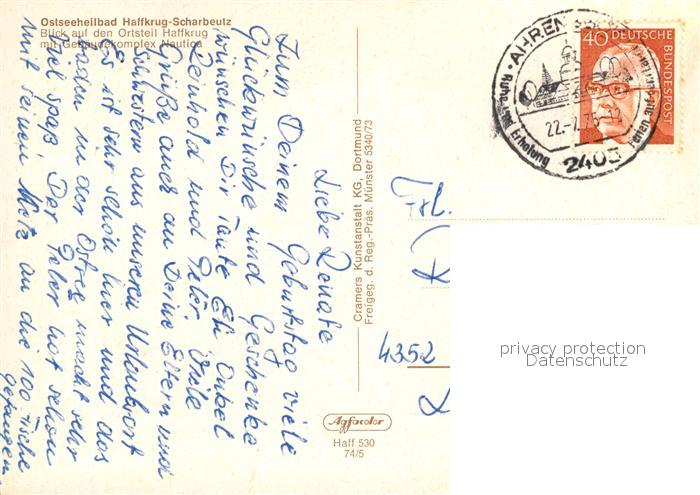 Ostseeheilbad Haffkrug-Scharbeutz
Blick auf den Ortsteil Haffkrug
mit Gebäudekomplex Nautica
Liebe Renate
Zum Deinem Geburtstag viele
Glückwünsche und Geschenke
wünschen Dir Tante Onkel
Reinhold und Peter. Viele
Grüße auch an Deine Eltern und
Schwestern aus unseren Urlaubsort
Es ist sehr schön hier und das
Baden in der Ostsee macht sehr
viel spaß. Der Peter hat schon
mit seinen Netz an die 100 Fische
gefangen.
Cramers Kunstanstalt KG, Dortmund
Freigeg. d. Reg.-Präs. Münster 5340/73
Agfacolor
Haff 530
74/5
40 DEUTSCHE
BUNDESPOST
22.-7.75
2403
Ruhe und Erholung
Frl.
R
4352
privacy protection
Datenschutz